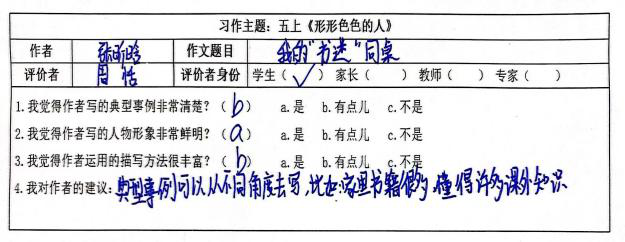 习作主题：五上《形形色色的人》
作者 张昕晗 作文题目 我的“书迷”同桌
评价者 周恬 评价者身份 学生（√） 家长（ ） 教师（ ） 专家（ ）
1.我觉得作者写的典型事例非常清楚？（b） a.是 b.有点儿 c.不是
2.我觉得作者写的人物形象非常鲜明？（a） a.是 b.有点儿 c.不是
3.我觉得作者运用的描写方法很丰富？（b） a.是 b.有点儿 c.不是
4.我对作者的建议：典型事例可以从不同角度去写，比如：家里书籍很多，懂得许多课外知识